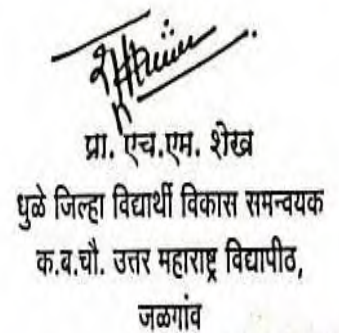 प्रा. एच.एम. शेख
धुळे जिल्हा विद्यार्थी विकास समन्वयक
क.ब.चौ. उत्तर महाराष्ट्र विद्यापीठ,
जळगांव